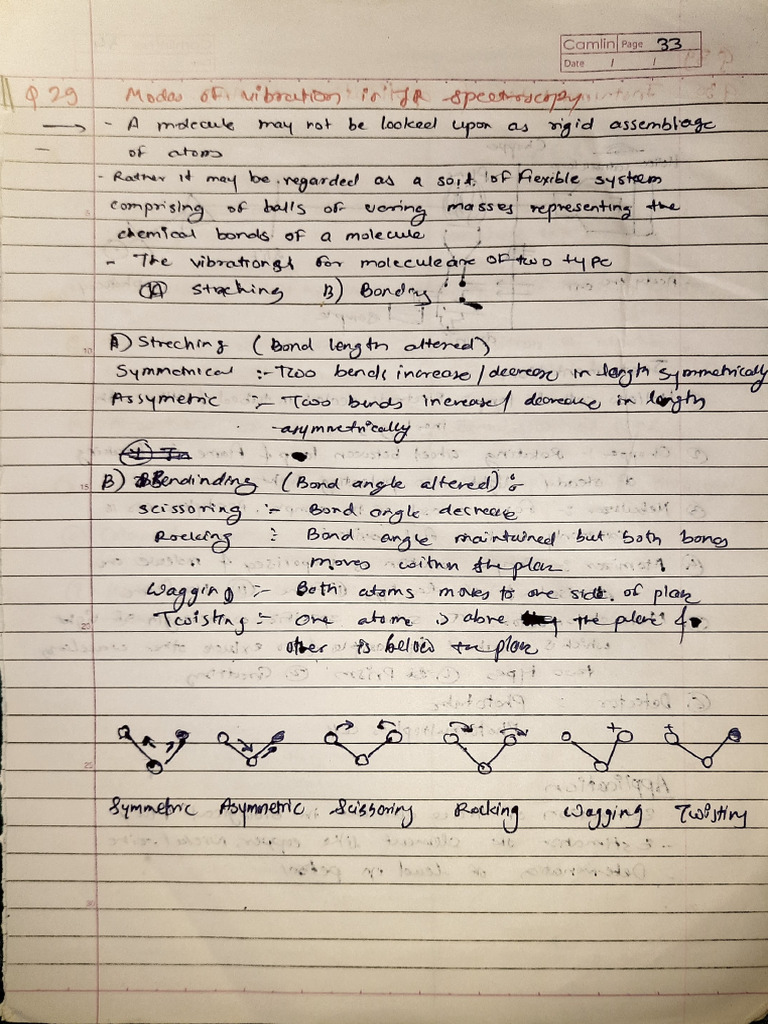 Camlin Page 33
Date / /
Q 29 Modes of vibration in IR spectroscopy
→ - A molecule may not be looked upon as rigid assembliage
of atoms
- Rather it may be regarded as a sort of flexible system
comprising of balls of varing masses representing the
chemical bonds of a molecule
- The vibrations for molecule are of two type
(A) Streching B) Bonding
A) Streching (Bond length altered)
Symmetrical :- Two bends increase/decrease in length symmetrically
Assymetric :- Two bends increase/decrease in length
asymmetrically
B) Bendinding (Bond angle altered) :
scissoring :- Bond angle decrease
Rocking : Bond angle maintained but both bones
moves within the plan
Wagging :- Both atoms moves to one side of plan
Twisting :- one atome is above the plane &
other is below the plan
+ +
Symmetric Asymmetric Scissoring Rocking Wagging Twisting